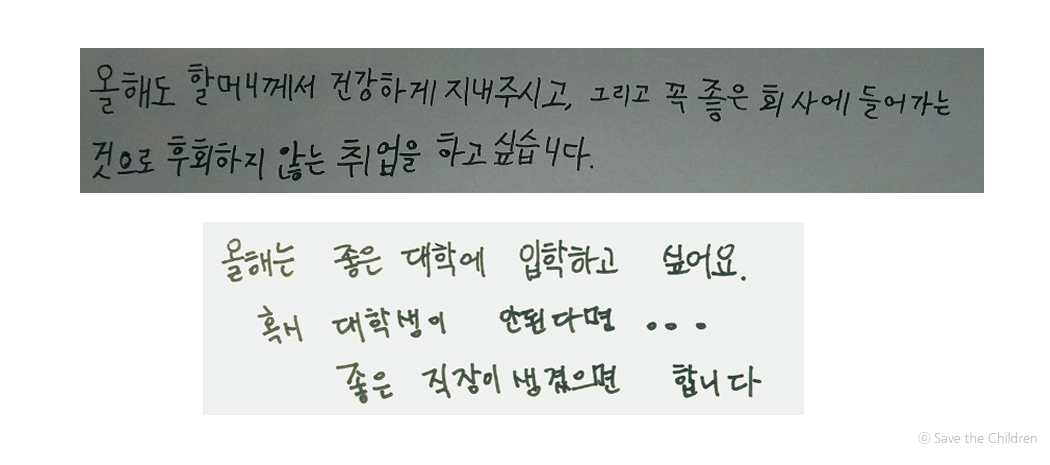 올해도 할머니께서 건강하게 지내주시고, 그리고 꼭 좋은 회사에 들어가는
것으로 후회하지 않는 취업을 하고 싶습니다.
올해는 좋은 대학에 입학하고 싶어요.
혹시 대학생이 안된다면 ...
좋은 직장이 생겼으면 합니다
ⓒ Save the Children